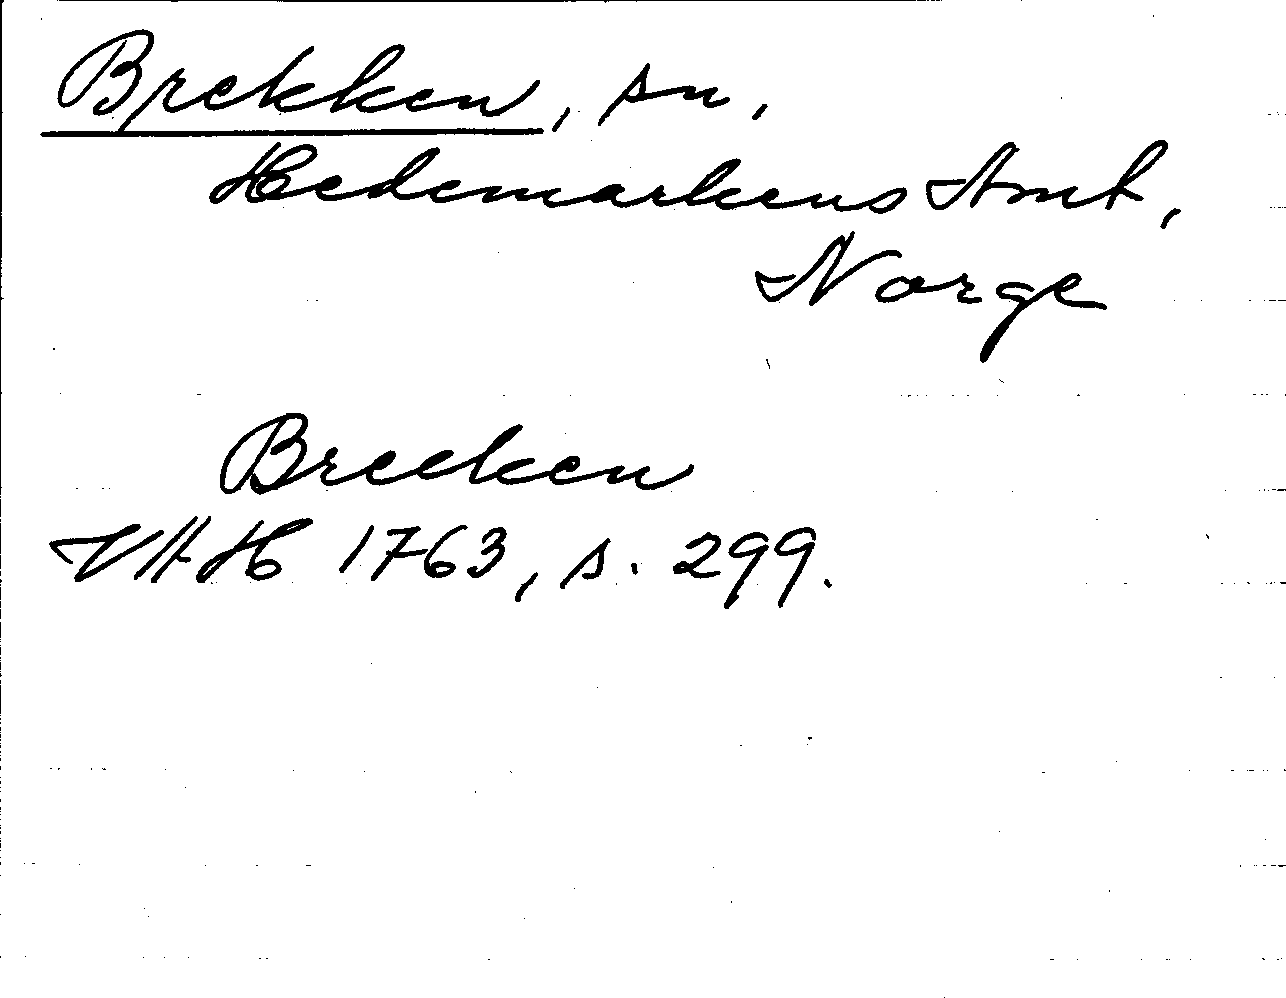 Brekken, sn,
Hedemarkens Amt,
Norge
Brecken
VAH 1763, s. 299.